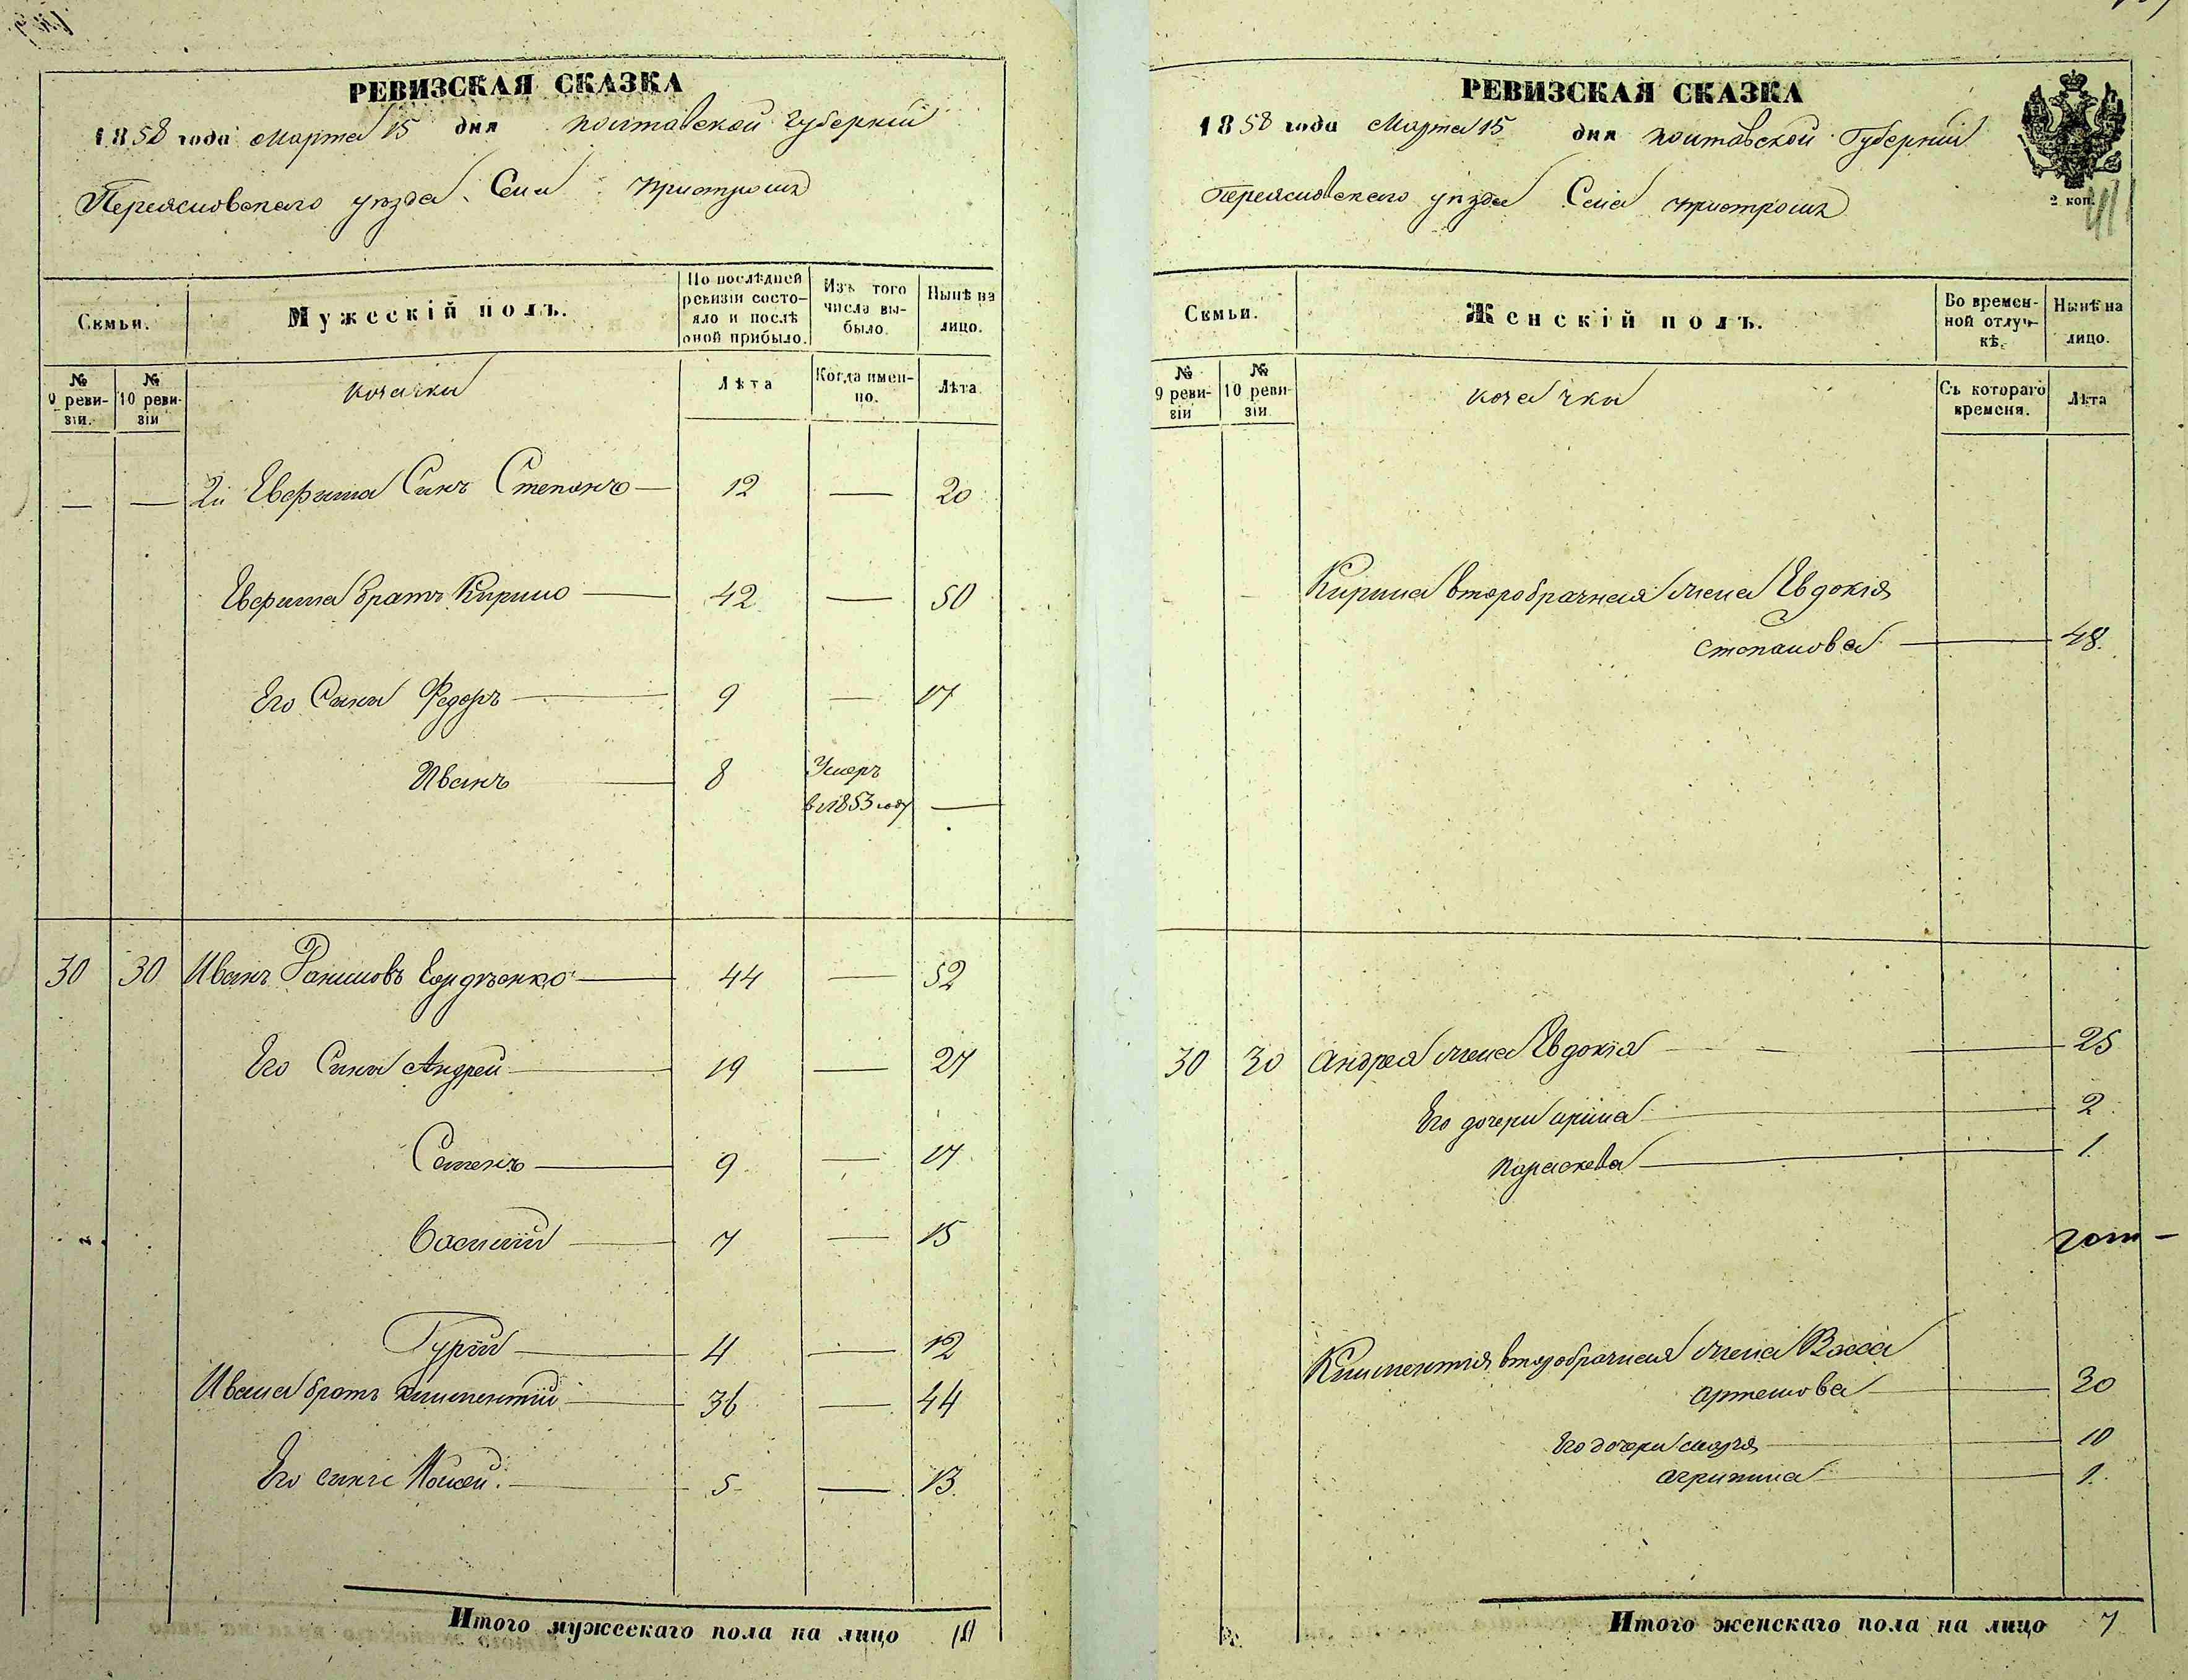 РЕВИЗСКАЯ СКАЗКА
1858 года Марта 15 дня Полтавской Губерніи
Переяславского уѣзда Села Пристромъ
Семьи.
Мужескій полъ.
По послѣдней ревизіи состояло и послѣ оной прибыло.
Изъ того числа выбыло.
Нынѣ на лицо.
№ 9 ревизіи.
№ 10 ревизіи
козачки
Лѣта
Когда именно.
Лѣта
— — 2й Евфима Синъ Степанъ — 12 — 20
Евфима братъ Кирило — 42 — 50
Его Сини Федоръ — 9 — 17
Иванъ — 8 Умеръ
в 1853 году —
30 30 Иванъ Гордѣенко — 44 — 52
Его Сини Андрей — 19 — 27
Семенъ — 9 — 17
Василій — 7 — 15
Гурій — 4 — 12
Ивана братъ Климентій — 36 — 44
Его синъ — 5 — 13
Итого мужескаго пола на лицо
РЕВИЗСКАЯ СКАЗКА
1858 года Марта 15 дня Полтавской Губерніи
2 коп.
Переяславского уѣзда Села Пристромъ
Семьи.
Женскій полъ.
Во временной отлучкѣ.
Нынѣ на лицо.
№ 9 ревизіи
№ 10 ревизіи
козачки
Съ котораго времени.
Лѣта
Кирила второбрачная жена Евдокія
Степанова — 48
30 30 Андрея жена Евдокія — 25
Его дочери Ирина — 2
Параскева — 1
Климентія второбрачная жена Васса
Артемова — 30
Его дочери Марія — 10
Агрипина — 1
Итого женскаго пола на лицо 7